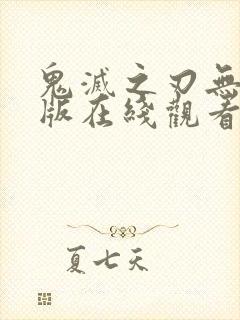 鬼滅之刃無
版在綫觀看
夏七天